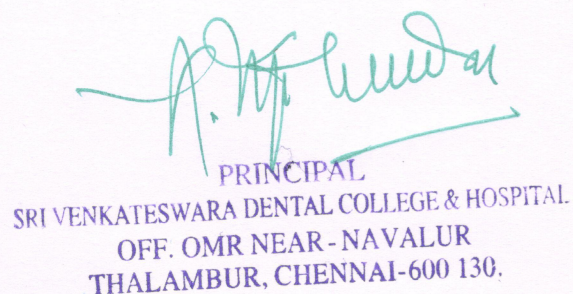 PRINCIPAL
SRI VENKATESWARA DENTAL COLLEGE & HOSPITAL
OFF. OMR NEAR - NAVALUR
THALAMBUR, CHENNAI-600 130.